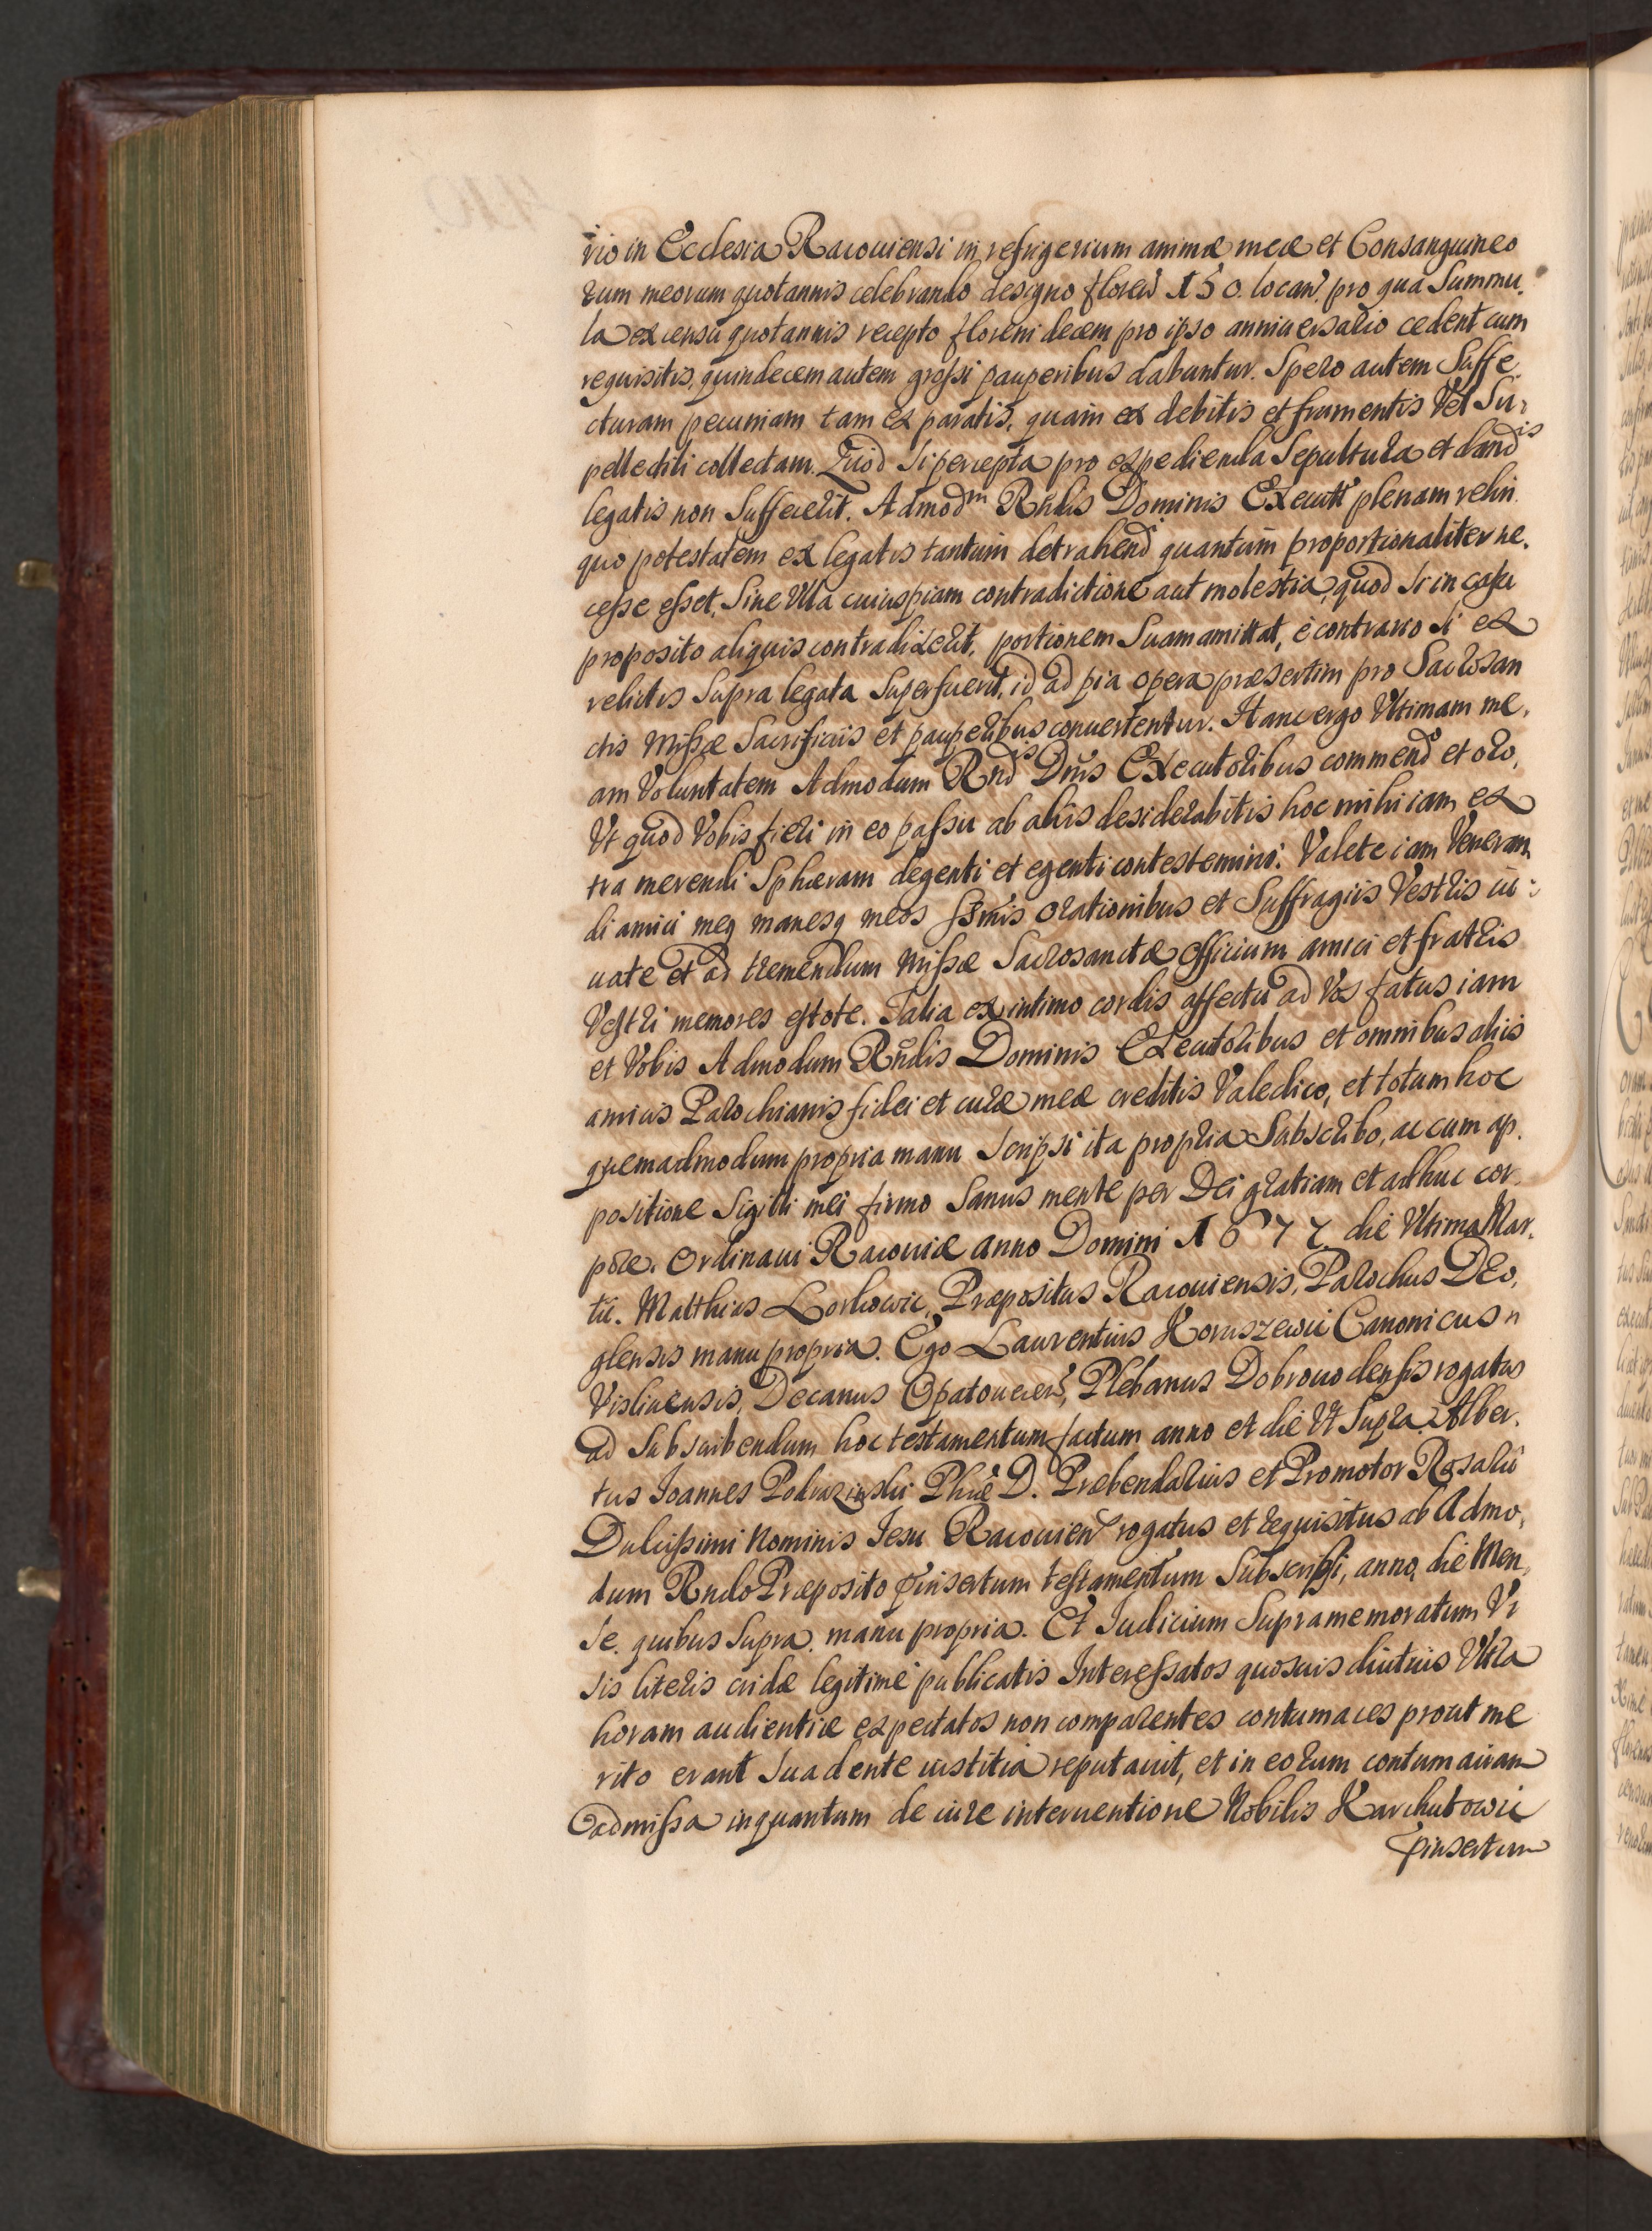 rio in Ecclesia Racouiensi in refrigerium animæ meæ et Consanguineo
rum meorum quotannis celebrando designo floren 150. locan. pro qua Summu,
la ex censu quotannis recepto floreni decem pro ipso anniuersario cedent cum
requisitis, quindecem autem grossi pauperibus dabuntur. Spero autem Suffe
cturam pecuniam tam ex paratis, quam ex debitis et frumentis Vel Su,
pellectili collectam. Quod si percepta pro expedienda Sepultura et dandis
legatis non Suffecerit. Admodm Rñdis Dominis Execut plenam relin
quo potestatem ex legatis tantum detrahend quantum proportionaliter ne,
cesse esset, Sine Vlla cuiuspiam contradictione aut molestia, quod si in casu
proposito aliquis contradixerit, portionem Suam amittat, è contrario si ex
relictis Supra legata Superfuerit, id ad pia opera præsertim pro Sacrosan
ctis Missæ Sacrificiis et pauperibus conuertentur. Hanc ergo Vltimam me,
am Voluntatem Admodum Rndis Dnis Executoribus commendo et oro,
Vt quod Vobis fieri in eo passu ab aliis desiderabitis hoc mihi iam ex
tra merendi Sphæram degenti et egenti contestemini. Valete iam Veneran
di amici meq manesq meos ssmis orationibus et Suffragiis Vestris iu:
uate et ad tremendum Missæ Sacrosanctæ officium amici et fratris
Vestri memores estote. Talia ex intimo cordis affectu ad Vos fatus iam
et Vobis Admodum Rñdis Dominis Executoribus et omnibus aliis
amicis Parochianis fidei et curæ meæ creditis Valedico, et totum hoc
quemadmodum propria manu scripsi ita propria Subscribo, ac cum ap.
positione Sigilli mei firmo Sanus mente per Dei gratiam et adhuc cor
põre. Ordinaui Racouiæ anno Domini 1677 die Vltima Mar,
tii. Matthias Lorkowic, Præpositus Racouiensis, Parochus Dro,
glensis manu propria. Ego Laurentius Koruszewic Canonicus
Visliuensis, Decanus Opatouecen, Plebanus Dobrowodensis rogatus
ad Subscribendum hoc testamentum factum anno et die Vt Supra. Alber,
tus Joannes Podrazinski Phiæ D. Præbendarius et Promotor Rosarii
Dulcissimi Nominis Iesu Racouien rogatus et requisitus ab Admo,
dum Rndo Præposito pinsertum testamentum Subscripsi, anno, die Men,
se. quibus Supra. manu propria. Et Iudicium Supramemoratum Vi
sis literis cridæ legitimè publicatis Interessatos quosuis diutius Vltra
horam audientiæ expectatos non comparentes contumaces prout me
rito erant Suadente iustitia reputauit, et in eorum contumaciam
admissa inquantum de iure interuentione Nobilis Karchutowic
pinsertum